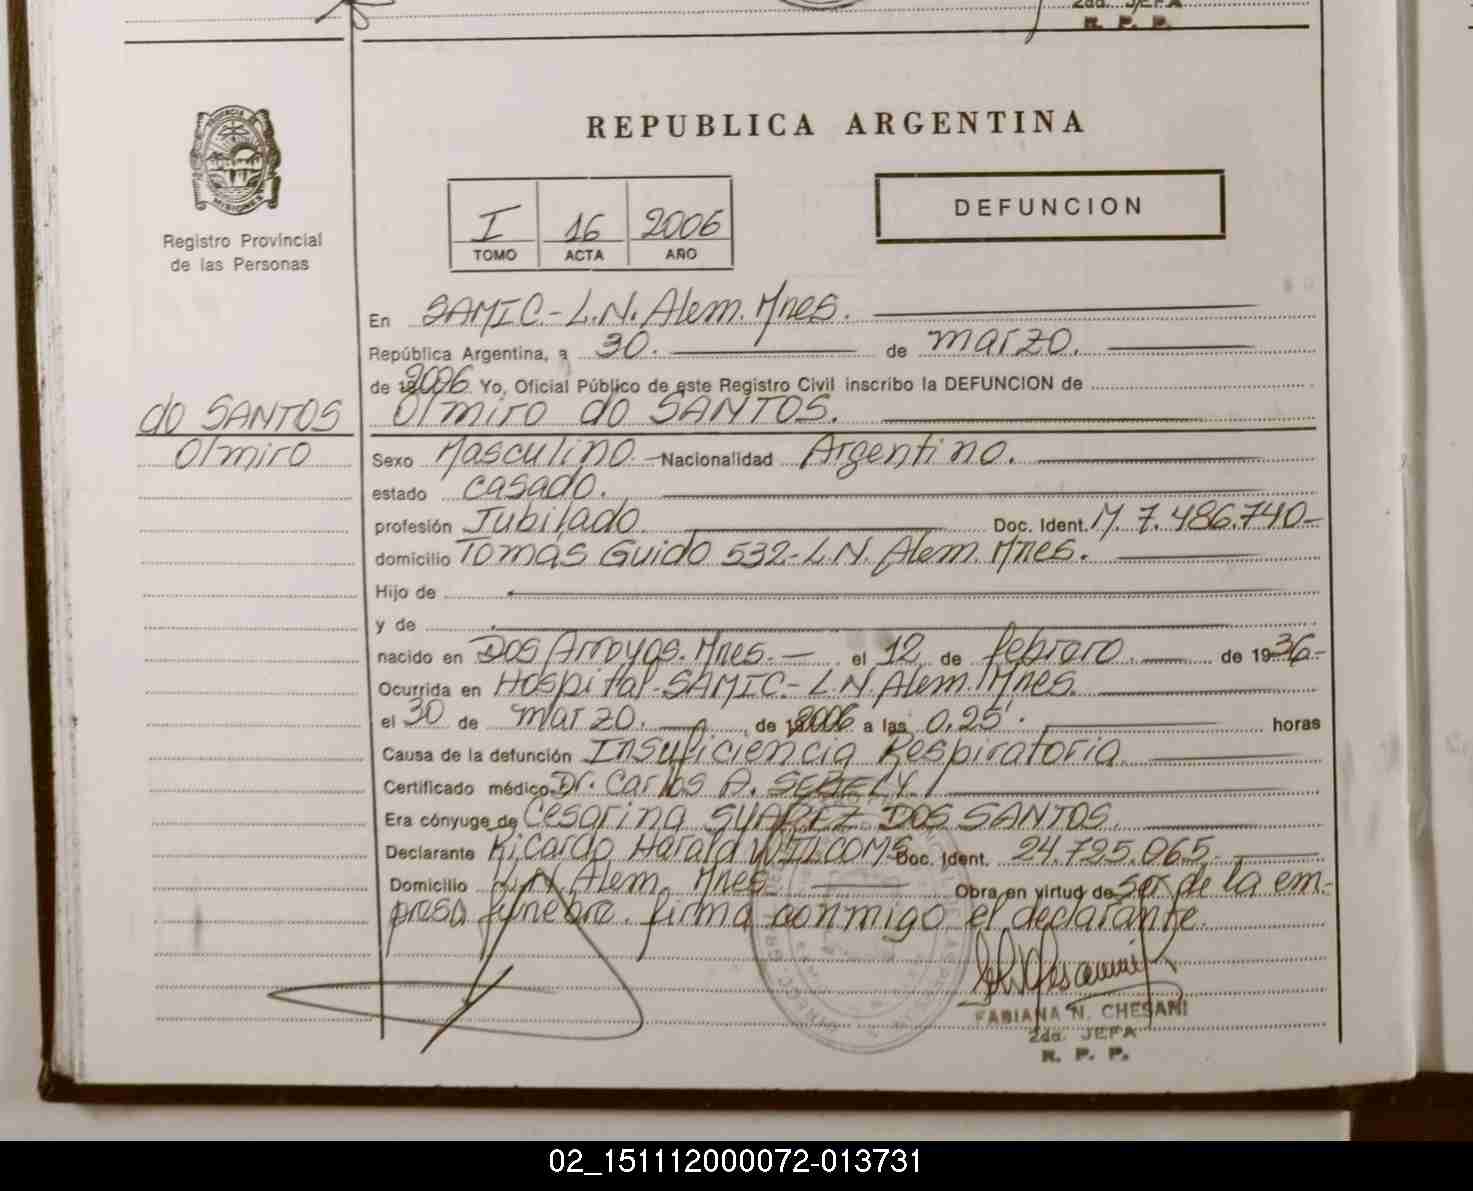 2da. JEFA
R. P. P.
PROVINCIA DE
MISIONES
Registro Provincial
de las Personas
REPUBLICA ARGENTINA
I 16 2006
TOMO ACTA AÑO
DEFUNCION
En SAMIC.-L.N.Alem.Mnes.
República Argentina, a 30. de marzo.
de 2006 Yo, Oficial Público de este Registro Civil inscribo la DEFUNCION de
Olmiro do SANTOS.
do SANTOS
Olmiro
Sexo Masculino. Nacionalidad Argentino.
estado casado.
profesión Jubilado. Doc. Ident. M. 7.486.740-
domicilio Tomás Guido 532-L.N. Alem. Mnes.
Hijo de
y de
nacido en Dos Arroyos. Mnes.- el 12 de febrero. de 1936-
Ocurrida en Hospital-SAMIC.-L.N.Alem.Mnes.
el 30 de marzo. , de 2006 a las 0,25'. horas
Causa de la defunción Insuficiencia Respiratoria.
Certificado médico Dr. Carlos A.
Era cónyuge de Cesarina SUAREZ DOS SANTOS.
Declarante Ricardo Harald WILCOMS Doc. Ident. 24.725.065.
Domicilio L.N.Alem. Mnes. Obra en virtud de Ser de la em-
presa fúnebre. firma conmigo el declarante.
FABIANA N. CHESANI
2da. JEFA
R. P. P.
02_151112000072-013731